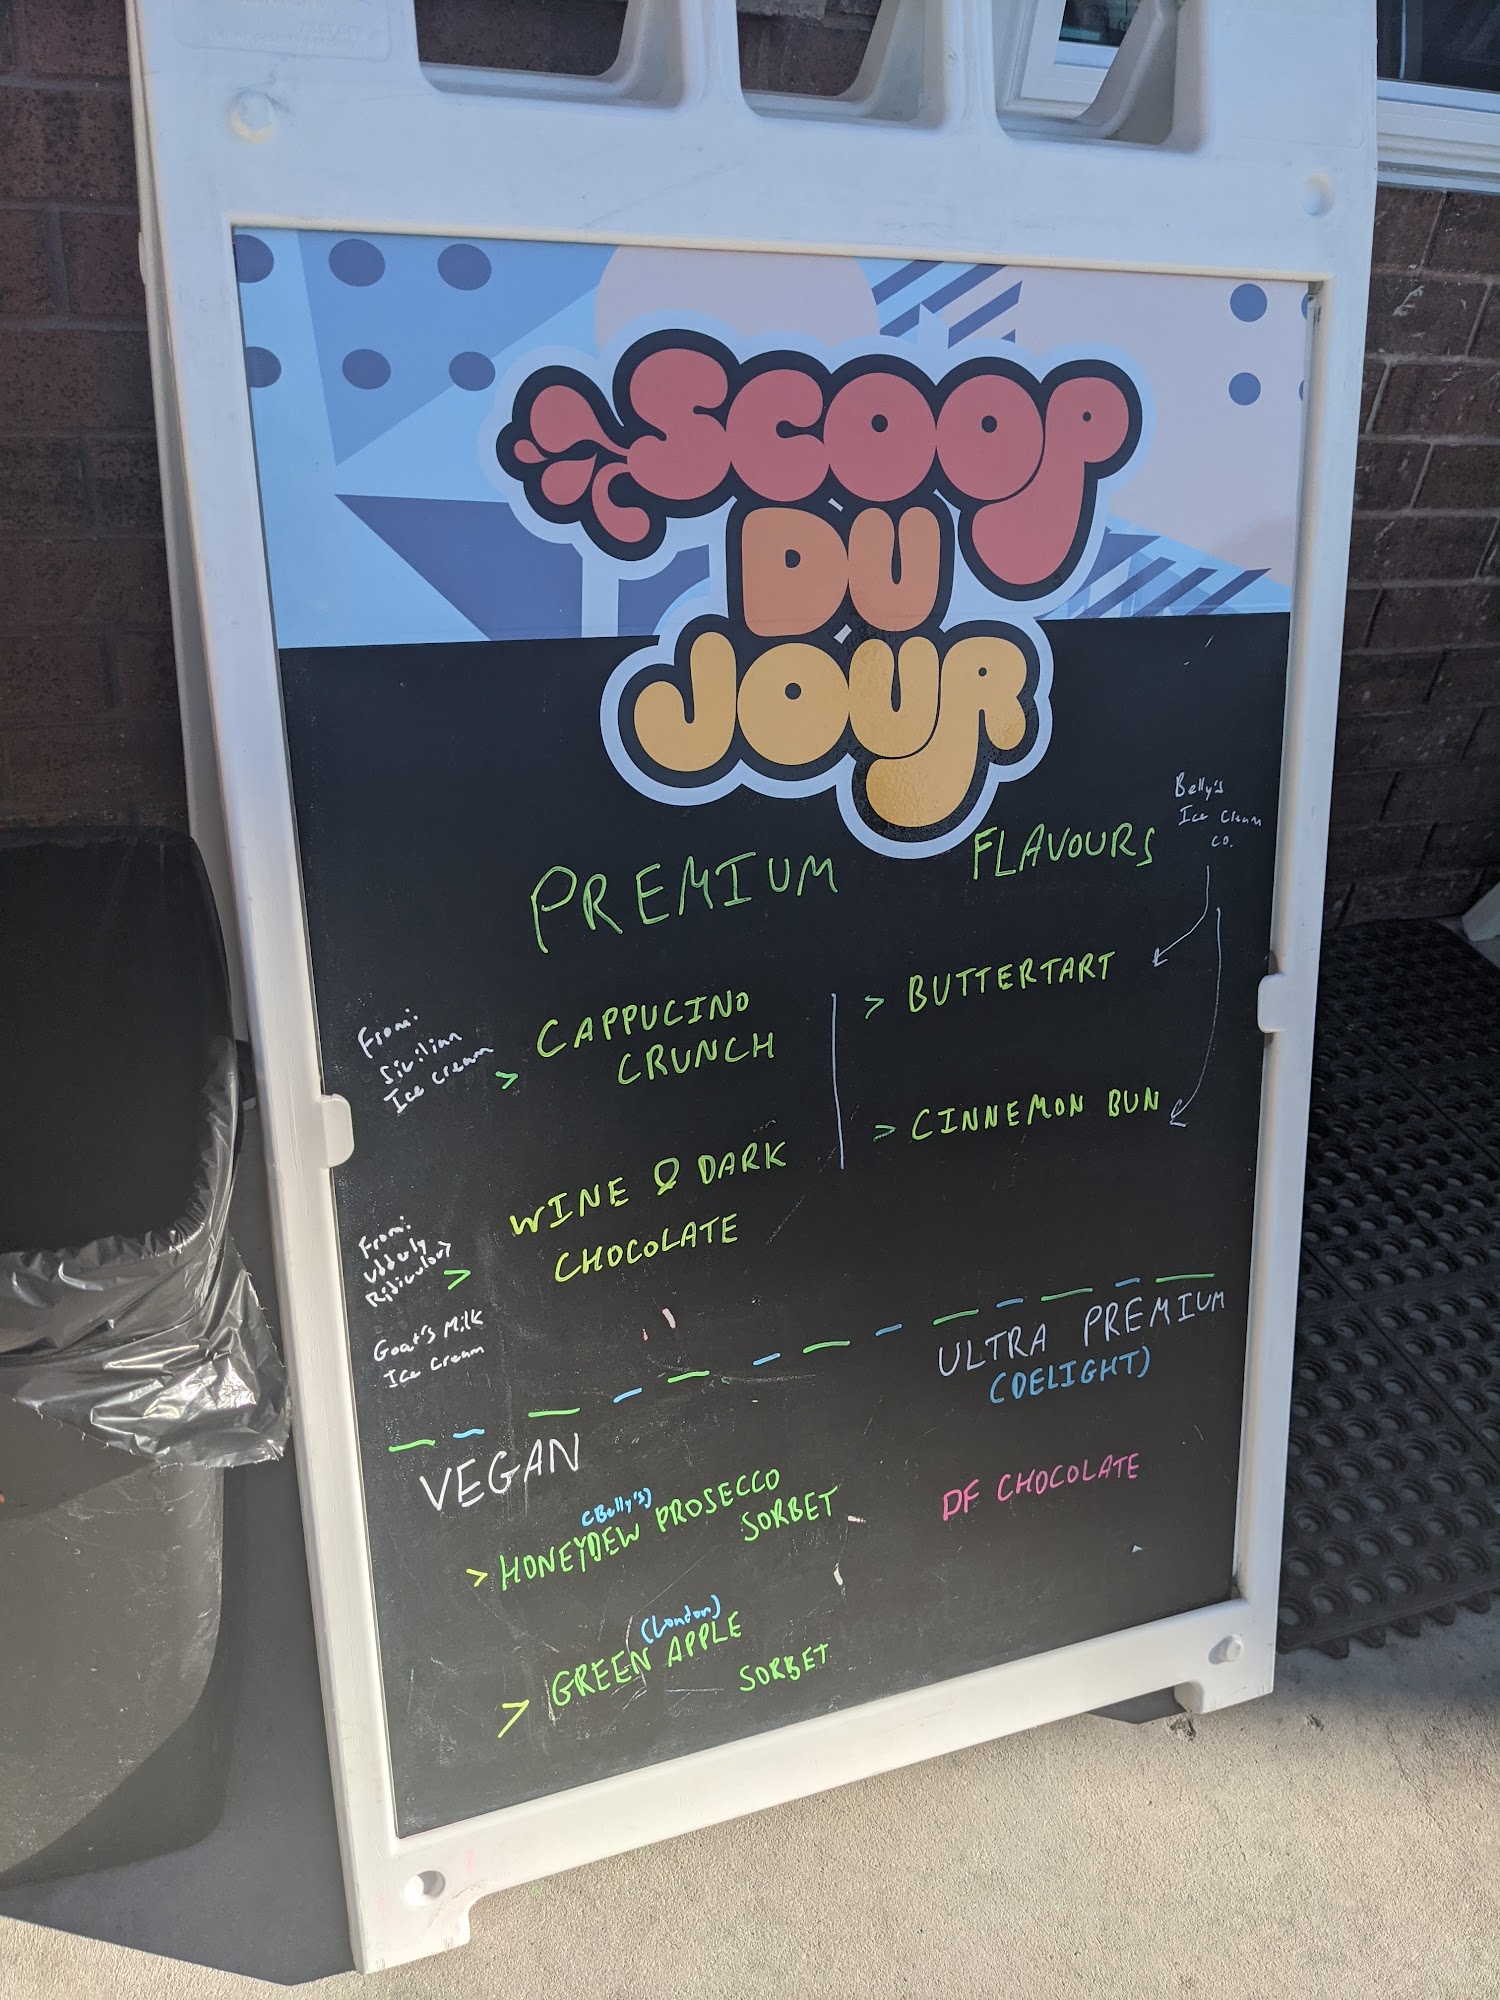 SCOOP
DU
JOUR
PREMIUM FLAVOURS
Belly's
Ice Cream
co.
From:
Sicilian
Ice cream
> CAPPUCINO
CRUNCH
> BUTTERTART
> CINNEMON BUN
From:
Udderly
Ridiculous
Goat's Milk
Ice Cream
> WINE & DARK
CHOCOLATE
VEGAN
(Belly's)
> HONEYDEW PROSECCO
SORBET
(London)
> GREEN APPLE
SORBET
ULTRA PREMIUM
(DELIGHT)
DF CHOCOLATE